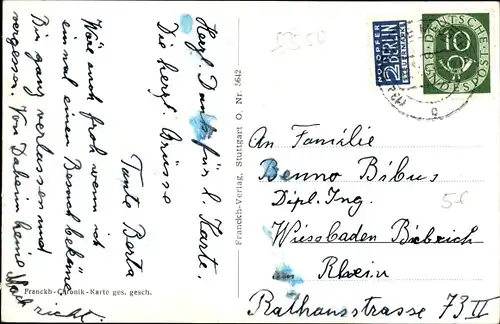 Herzl. Dank für l. Karte.
Die herzl. Grüsse
Tante Berta
Wäre auch froh wenn ich
einmal einen Besuch bekäme
Bin ganz verlassen und
vergessen. Von Daheim keine
Nachricht.
Franckh-Chronik-Karte ges. gesch.
Franckh-Verlag, Stuttgart O, Nr. 5642
NOTOPFER
2 BERLIN
STEUERMARKE
DEUTSCHE
10
BUNDESPOST
b
An Familie
Benno Bibus
Dipl. Ing.
Wiesbaden Biebrich
Rhein
Rathausstrasse 73 II